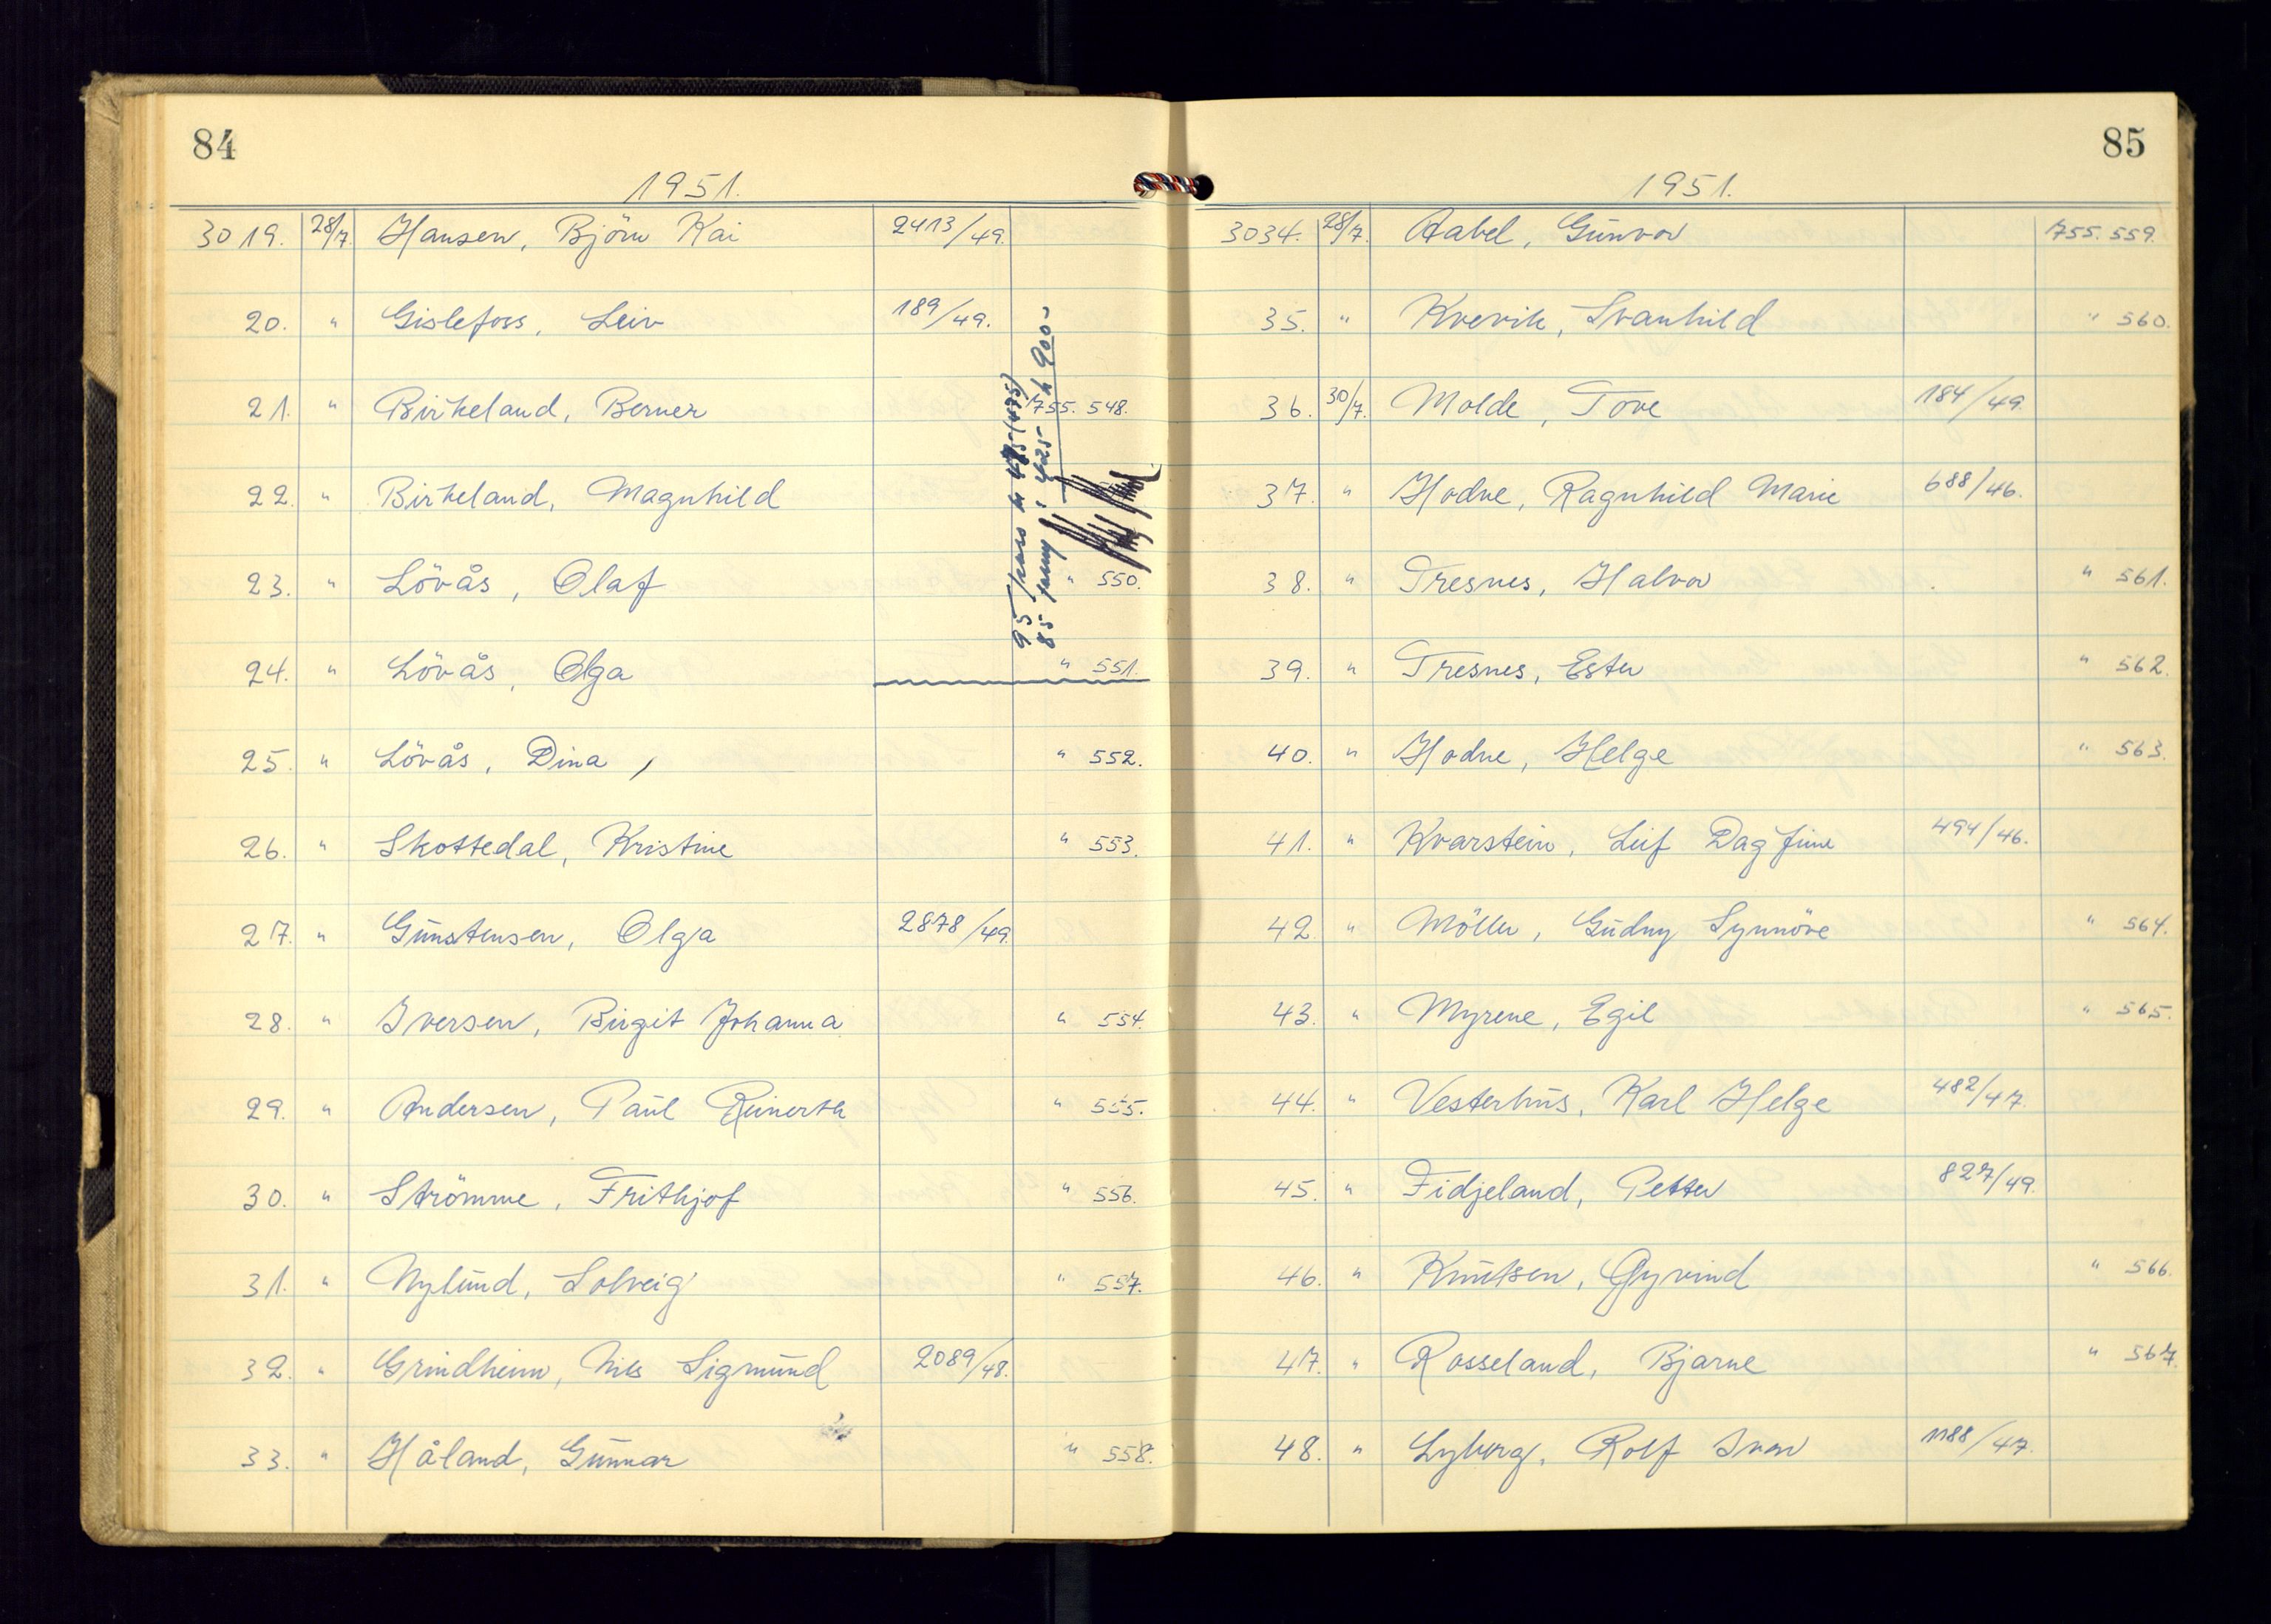 84
1951.
3019. 28/7. Hansen, Björn Kai 2413/49.
20. " Gislefoss, Leiv 189/49.
21. " Birkeland, Berner 1755. 548.
22. " Birkeland, Magnhild
23. " Lövås, Olaf " 550.
24. " Lövås, Olga " 551.
25. " Lövås, Dina , " 552.
26. " Skottedal, Kristine " 553.
27. " Gunstensen, Olga 2878/49.
28. " Iversen, Birgit Johanna " 554.
29. " Andersen, Paul Reinerth " 555.
30. " Strömme, Frithjof " 556.
31. " Nylund, Solveig " 557.
32. " Grindheim, Nils Sigmund 2089/48.
33. " Håland, Gunnar " 558.
95 kr 475-
85 425- 900-
85
1951.
3034. 28/7. Aabel, Gunvor 1755. 559.
35. " Kvevik, Svanhild " 560.
36. 30/7. Molde, Tove 184/49.
37. " Hodne, Ragnhild Marie 688/46.
38. " Tresnes, Halvor " 561.
39. " Tresnes, Ester " 562.
40. " Hodne, Helge " 563.
41. " Kvarstein, Leif Dagfinn 494/46.
42. " Möller, Gudny Synnöve " 564.
43. " Myrene, Egil " 565.
44. " Vesterhus, Karl Helge 482/47.
45. " Fidjeland, Petter 827/49.
46. " Knutsen, Øyvind " 566.
47. " Rosseland, Bjarne " 567.
48. " Lyberg, Rolf Ivar 1188/47.